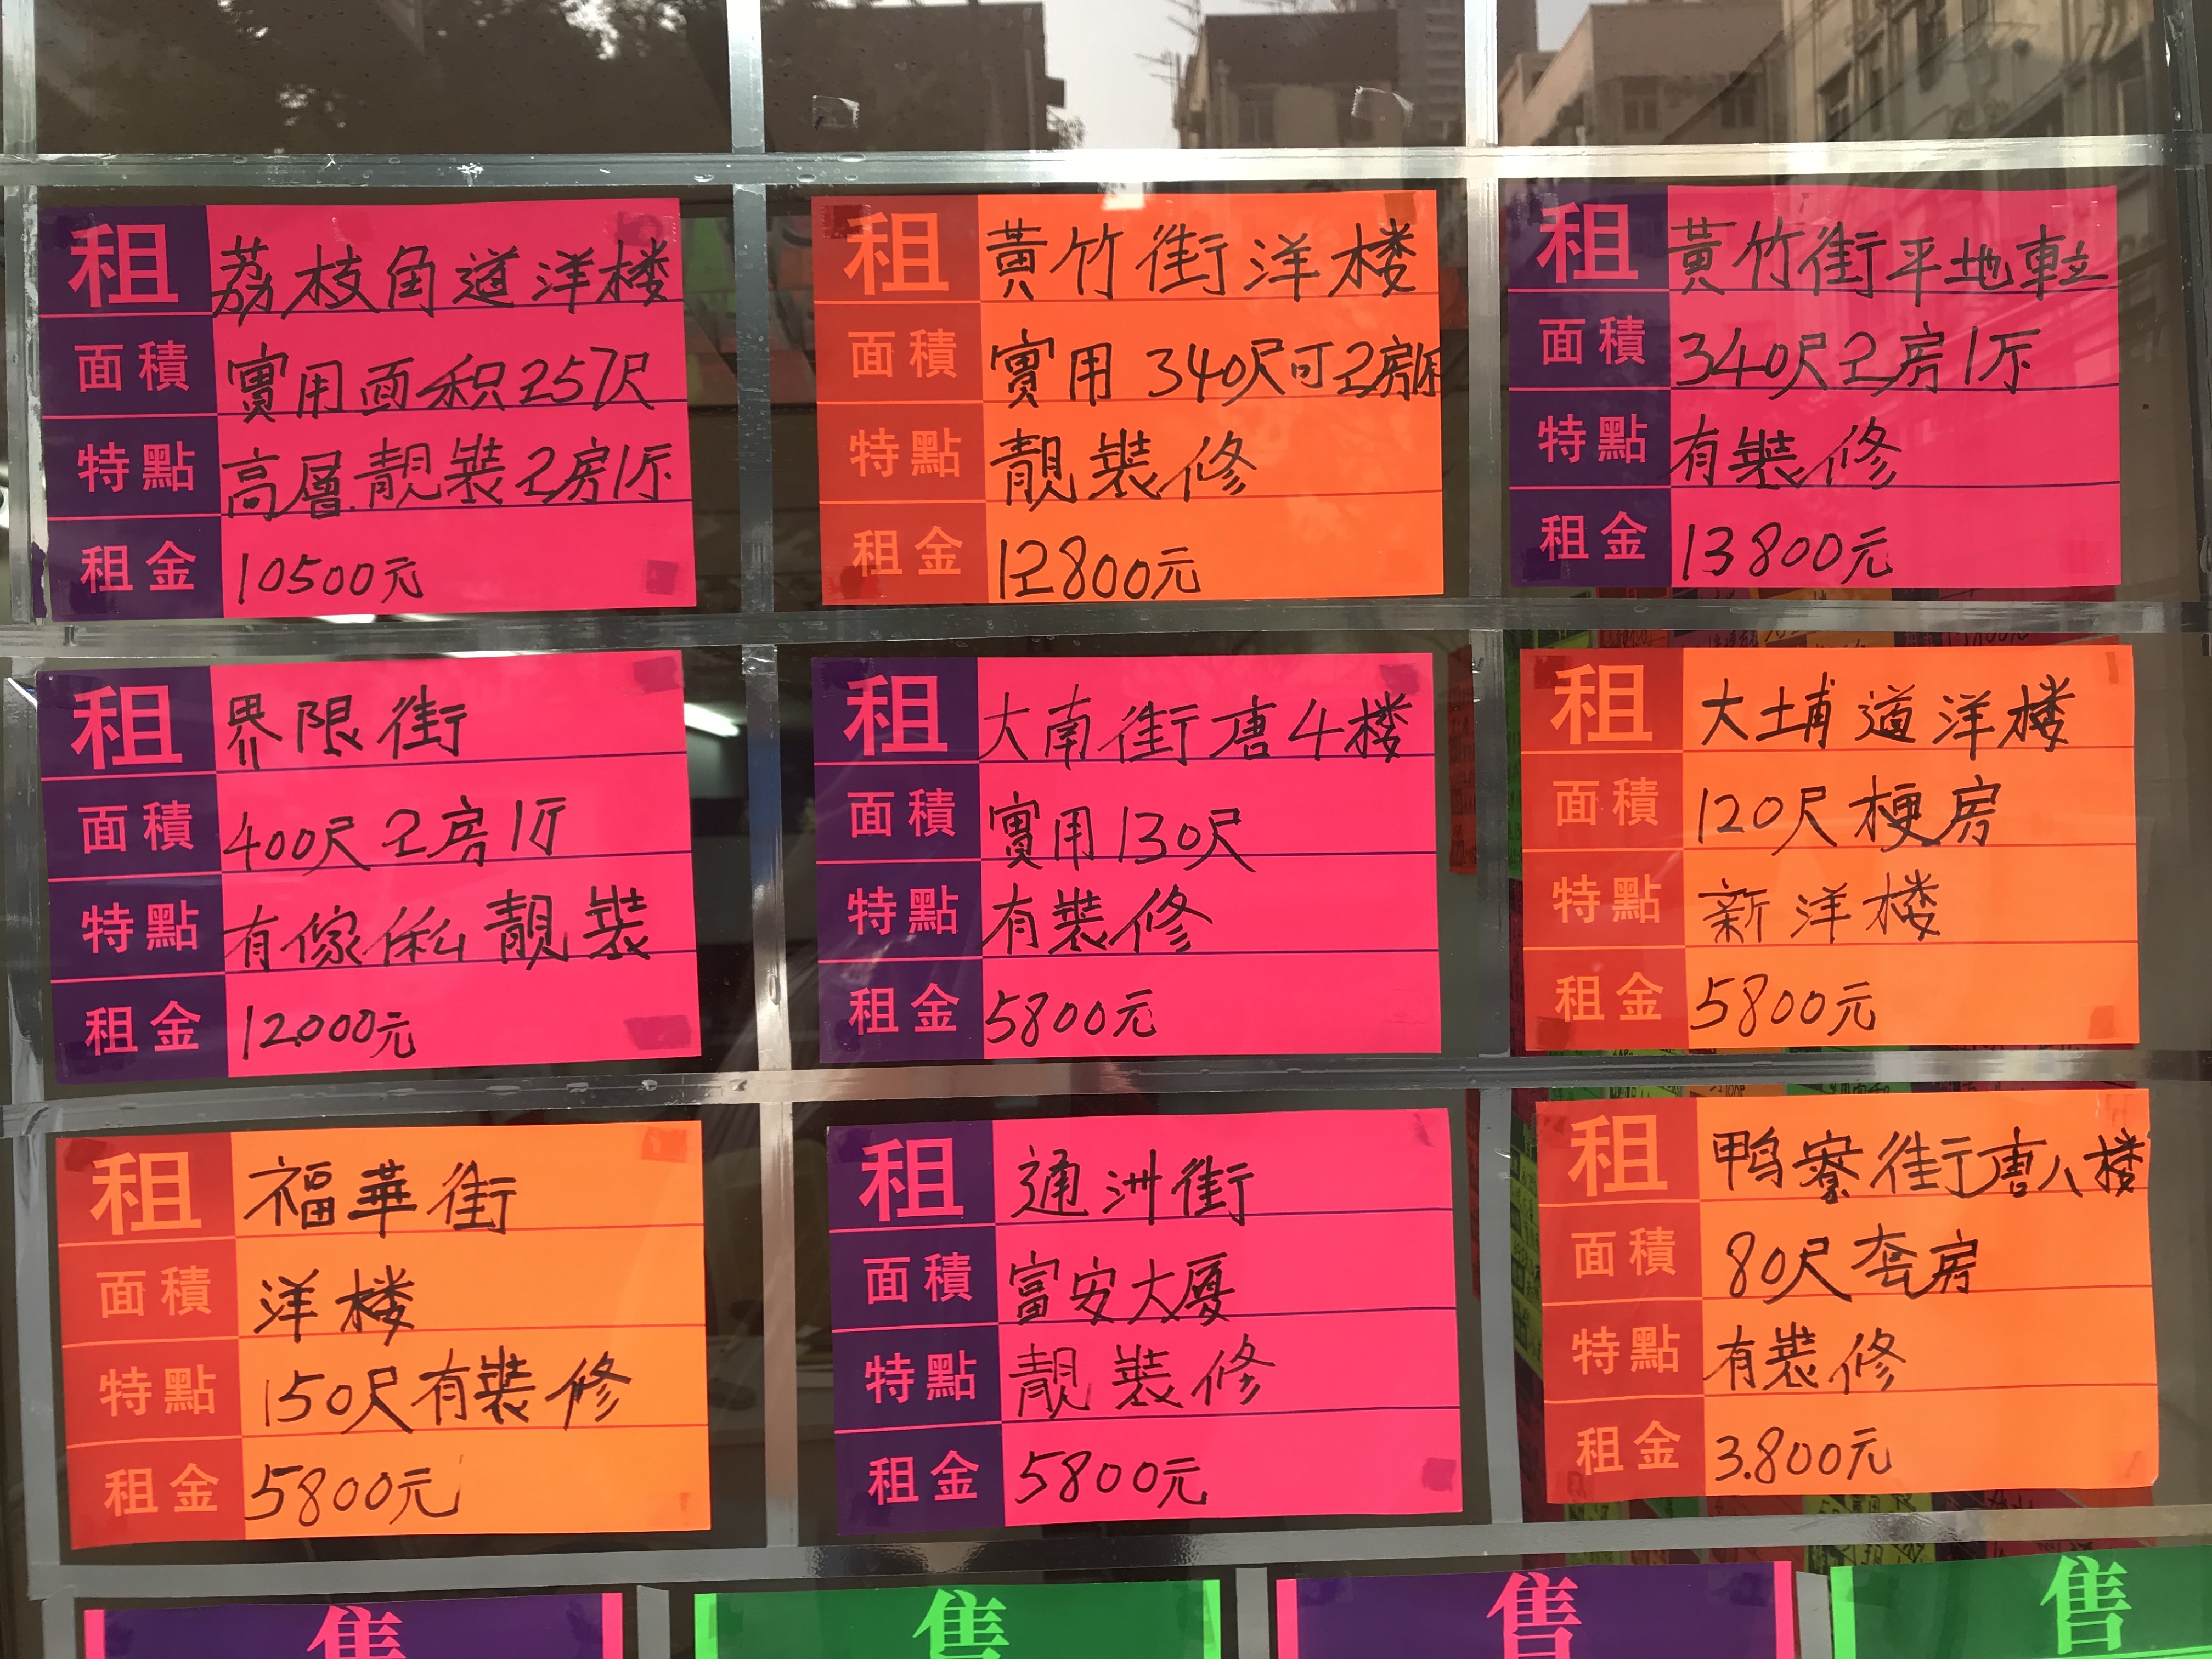 租 荔枝角道洋楼
面積 實用面积257尺
特點 高層.靚裝2房1厅
租金 10500元
租 黃竹街洋楼
面積 實用340尺可2房1厅
特點 靚裝修
租金 12800元
租 黃竹街平地䡛
面積 340尺2房1厅
特點 有裝修
租金 13800元
租 界限街
面積 400尺2房1厅
特點 有傢俬靚裝
租金 12000元
租 大南街唐4楼
面積 實用130尺
特點 有裝修
租金 5800元
租 大埔道洋楼
面積 120尺梗房
特點 新洋楼
租金 5800元
租 福華街
面積 洋楼
特點 150尺有裝修
租金 5800元
租 通洲街
面積 富安大厦
特點 靚裝修
租金 5800元
租 鸭寮街唐八楼
面積 80尺套房
特點 有裝修
租金 3.800元
售
售
售
售